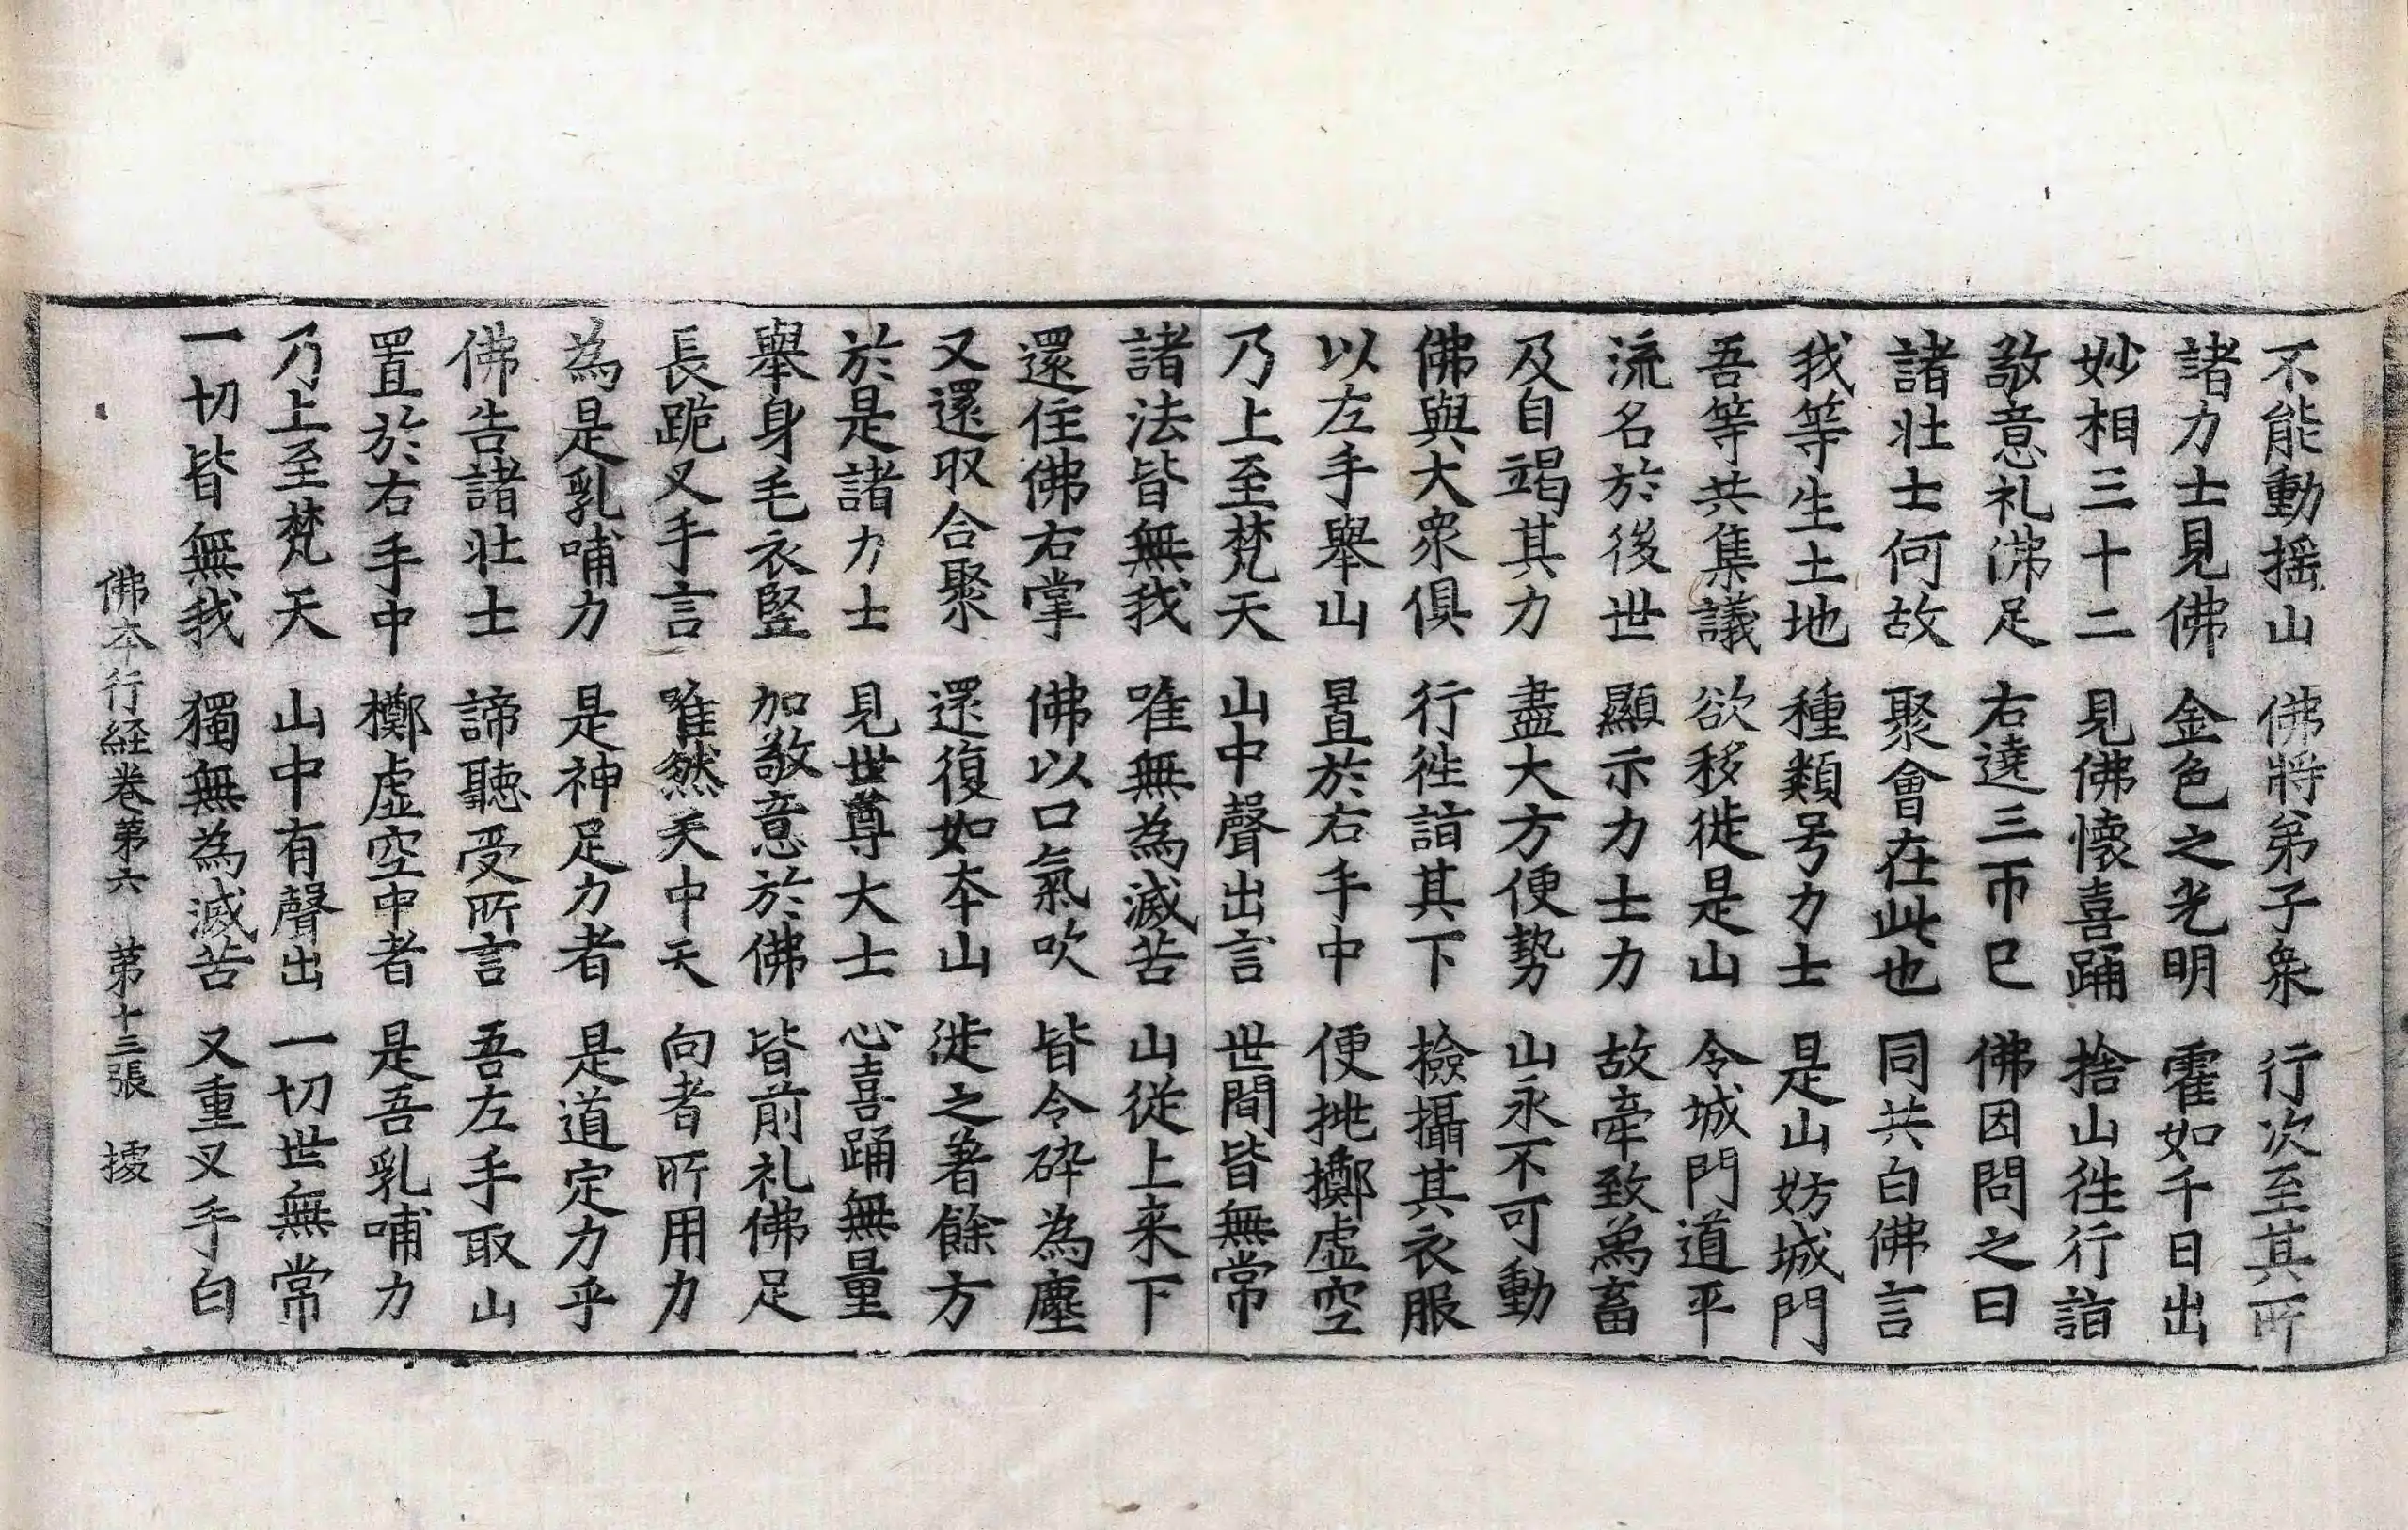 不能動揺山 佛將弟子衆 行次至其所
諸力士見佛 金色之光明 霍如千日出
妙相三十二 見佛懷喜踊 捨山徃行詣
敬意礼沸足 右遶三帀已 佛因問之曰
諸壯士何故 聚會在此也 同共白佛言
我等生土地 種類号力士 是山妨城門
吾等共集議 欲移徙是山 令城門道平
流名於後世 顯示力士力 故牽致萬畜
及自竭其力 盡大方便勢 山永不可動
佛與大衆俱 行徃詣其下 撿攝其衣服
以左手舉山 置於右手中 便挑擲虛空
乃上至梵天 山中聲出言 世間皆無常
諸法皆無我 唯無為滅苦 山從上来下
還住佛右掌 佛以口氣吹 皆令碎為塵
又還収合聚 還復如夲山 徙之著餘方
於是諸力士 見世尊大士 心喜踊無量
舉身毛衣豎 加敬意於佛 皆前礼佛足
長跪叉手言 唯然天中天 向者所用力
為是乳哺力 是神足力者 是道定力乎
佛告諸壯士 諦聽受所言 吾左手取山
置於右手中 擲虛空中者 是吾乳哺力
乃上至梵天 山中有聲出 一切世無常
一切皆無我 獨無為滅苦 又重叉手白
佛夲行経卷苐六 苐十三張 㩀